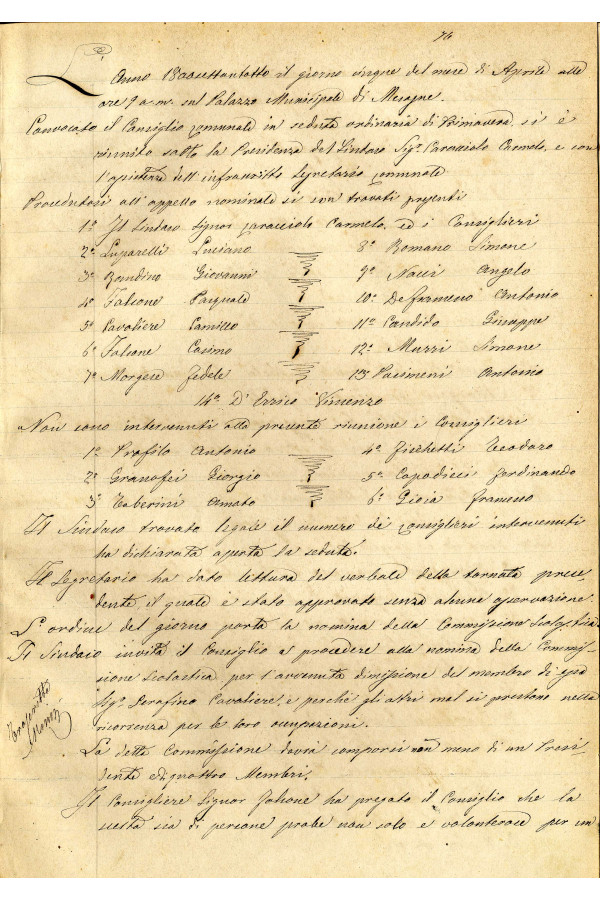 76
L'Anno 18oosettantotto il giorno cinque del mese di Aprile alle
ore 9 a.m. sul Palazzo Municipale di Mesagne.
Convocato il Consiglio comunale in seduta ordinaria di Primavera, si è
riunito sotto la Presidenza del Sindaco Sigr Caracciolo Carmelo, e con
l'assistenza dell'infrascritto Segretario comunale
Procedutosi all'appello nominale si son trovati presenti
1º Il Sindaco Signor Caracciolo Carmelo, ed i Consiglieri
2º Luparelli Luciano 8º Romano Simone
3º Rondino Giovanni 9º Nacci Angelo
4º Falcone Pasquale 10º De Francesco Antonio
5º Cavaliere Camillo 11º Candido Giuseppe
6º Falcone Cosimo 12º Murri Simone
7º Morgese Fedele 13º Pacimeni Antonio
14º D'Errico Vincenzo
Non sono intervenuti alla presente riunione i Consiglieri
1º Profilo Antonio 4º Ficchetti Teodoro
2º Granafei Giorgio 5º Capodieci Ferdinando
3º Taberini Amato 6º Gioia Francesco
Il Sindaco trovato legale il numero dei consiglieri intervenuti
ha dichiarata aperta la seduta.
Il Segretario ha dato lettura del verbale della tornata prece-
dente, il quale è stato approvato senza alcuna osservazione.
L'ordine del giorno porta la nomina della Commissione Scolastica
Il Sindaco invita il Consiglio a procedere alla nomina della Commis-
sione scolastica per l'avvenuta dimissione del membro di essa
Sigr Serafino Cavaliere, e perchè gli altri mal si prestano nella
ricorrenza per le loro occupazioni.
La detta Commissione dovrà comporsi non meno di un Presi-
dente e di quattro Membri.
Il Consigliere Signor Falcone ha pregato il Consiglio che la
scelta sia di persone probe non solo e volonterose per un